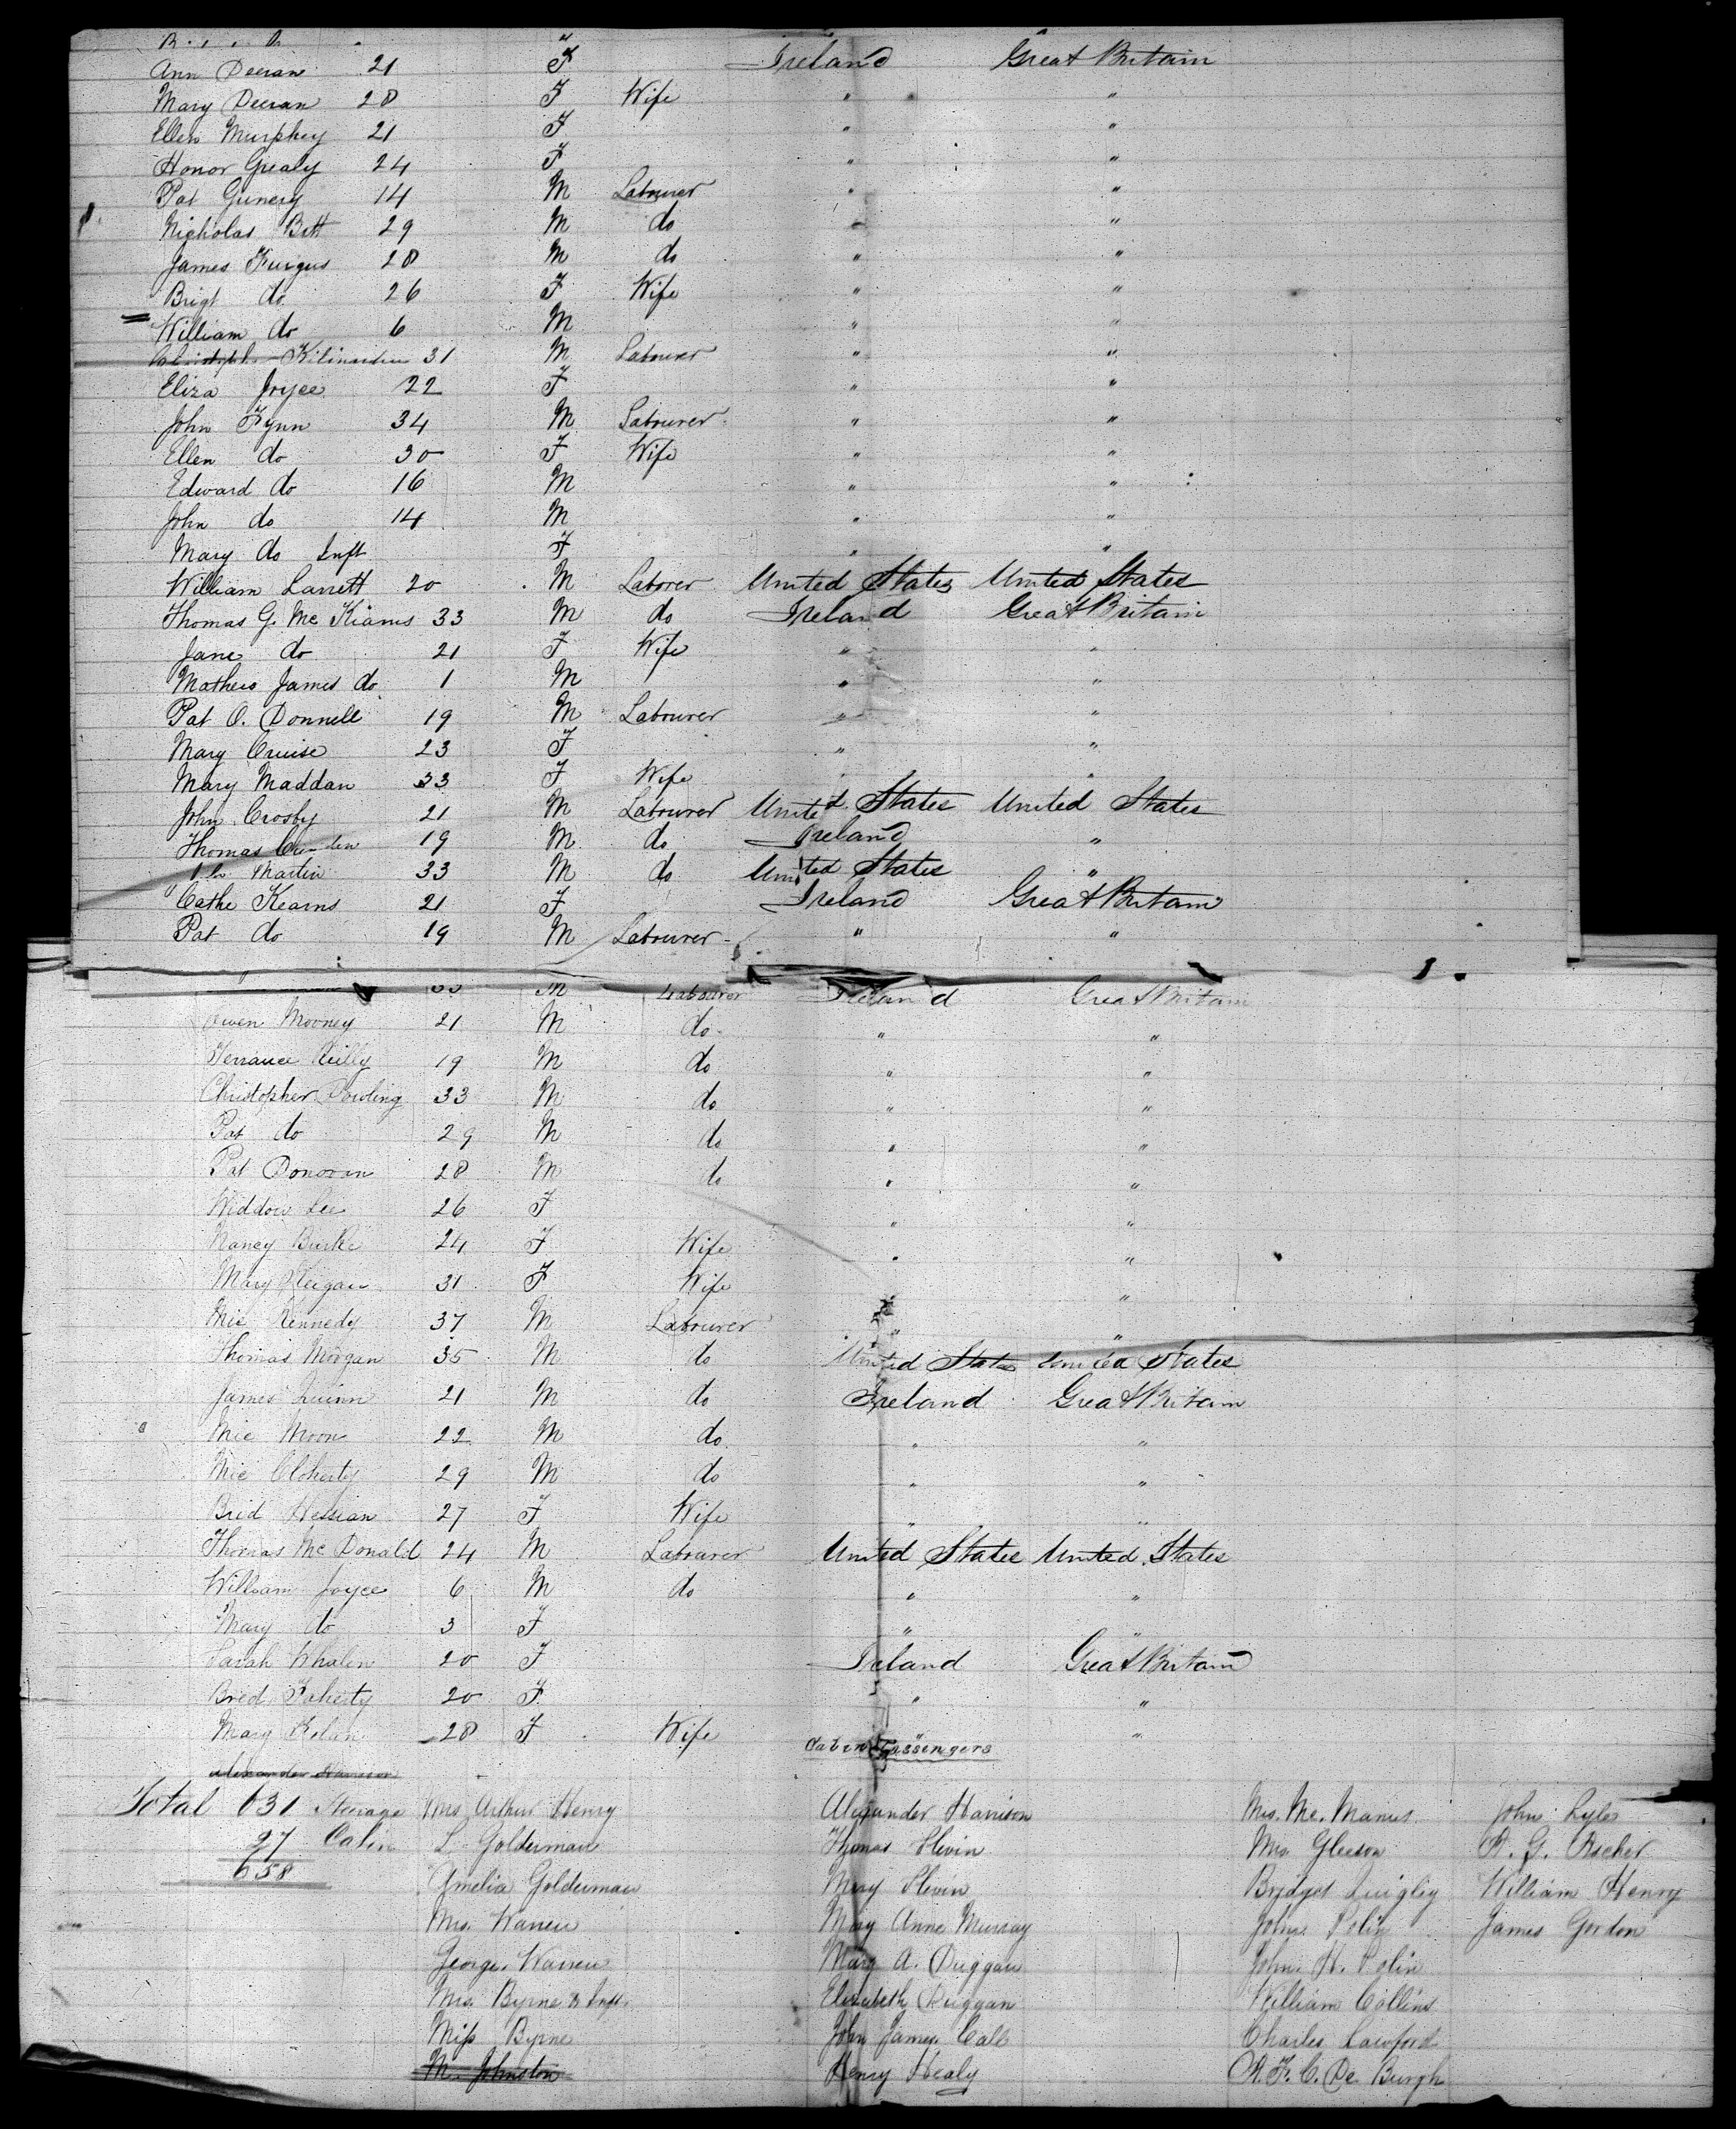 Ann Deeran 21 F Ireland Great Britain
Mary Deeran 28 F Wife " "
Ellen Murphey 21 F " "
Honor Grealy 24 F " "
Pat Gunery 14 M Labourer " "
Nicholas Bett 29 M do " "
James Furgus 28 M do " "
Brigt do 26 F Wife " "
William do 6 M " "
31 M Labourer " "
Eliza Joyce 22 F " "
John Fynn 34 M Labourer " "
Ellen do 30 F Wife " "
Edward do 16 M " "
John do 14 M " "
Mary do Inft F " "
William Larrett 20 M Laborer United States United States
Thomas G. Mc Kiams 33 M do Ireland Great Britain
Jane do 21 F Wife " "
Mathew James do 1 M " "
Pat O. Donnell 19 M Labourer " "
Mary Cruise 23 F " "
Mary Maddan 33 F Wife " "
John Crosby 21 M Labourer United States United States
Thomas 19 M do Ireland "
Martin 33 M do United States "
Cathe Kearns 21 F Ireland Great Britain
Pat do 19 M Labourer " "
33 M Labourer Ireland Great Britain
Owen Mooney 21 M do " "
Terrance Reilly 19 M do " "
Christopher Dowling 33 M do " "
Pat do 29 M do " "
Pat Donovan 28 M do " "
Widdow Lee 26 F " "
Nancy Burke 24 F Wife " "
Mary Keigan 31 F Wife " "
Mic Kennedy 37 M Labourer " "
Thomas Morgan 35 M do United States United States
James Quinn 21 M do Ireland Great Britain
Mic Moon 22 M do " "
Mic Cloherty 29 M do " "
Brid Hessian 27 F Wife " "
Thomas Mc Donald 24 M Labourer United States United States
William Joyce 6 M do " "
Mary do 3 F " "
Sarah Whalen 20 F Ireland Great Britain
Bred Faherty 20 F " "
Mary Kelan 28 F Wife " "
Cabin Passengers
Alexander Harrison
Total 631 Steerage Mrs Arthur Henry Alexander Harrison Mrs. Mc. Manus John Lyles
27 Cabin L. Golderman Thomas Slevin Mrs Gleeson A. G. Ascher
658 Amelia Golderman Mary Slevin Bridget Quigley William Henry
Mrs. Warren Mary Anne Murray John Polin James Gordon
George Warren Mary A. Duggan John H. Polin
Mrs. Byrne & Inft. Elizabeth Duggan William Collins
Miss Byrne John James Call Charles Lawford
M. Johnston Henry Healy A. F. C. De Burgh